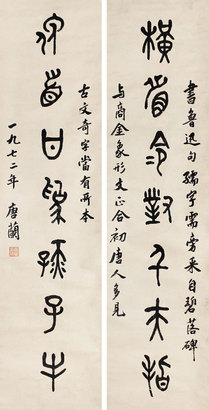 橫眉冷對千夫指
書魯迅句 孺字需旁采自碧落碑
与商金象形文正合 初唐人多見
古文奇字當有所本
俯首甘為孺子牛
一九七二年 唐蘭